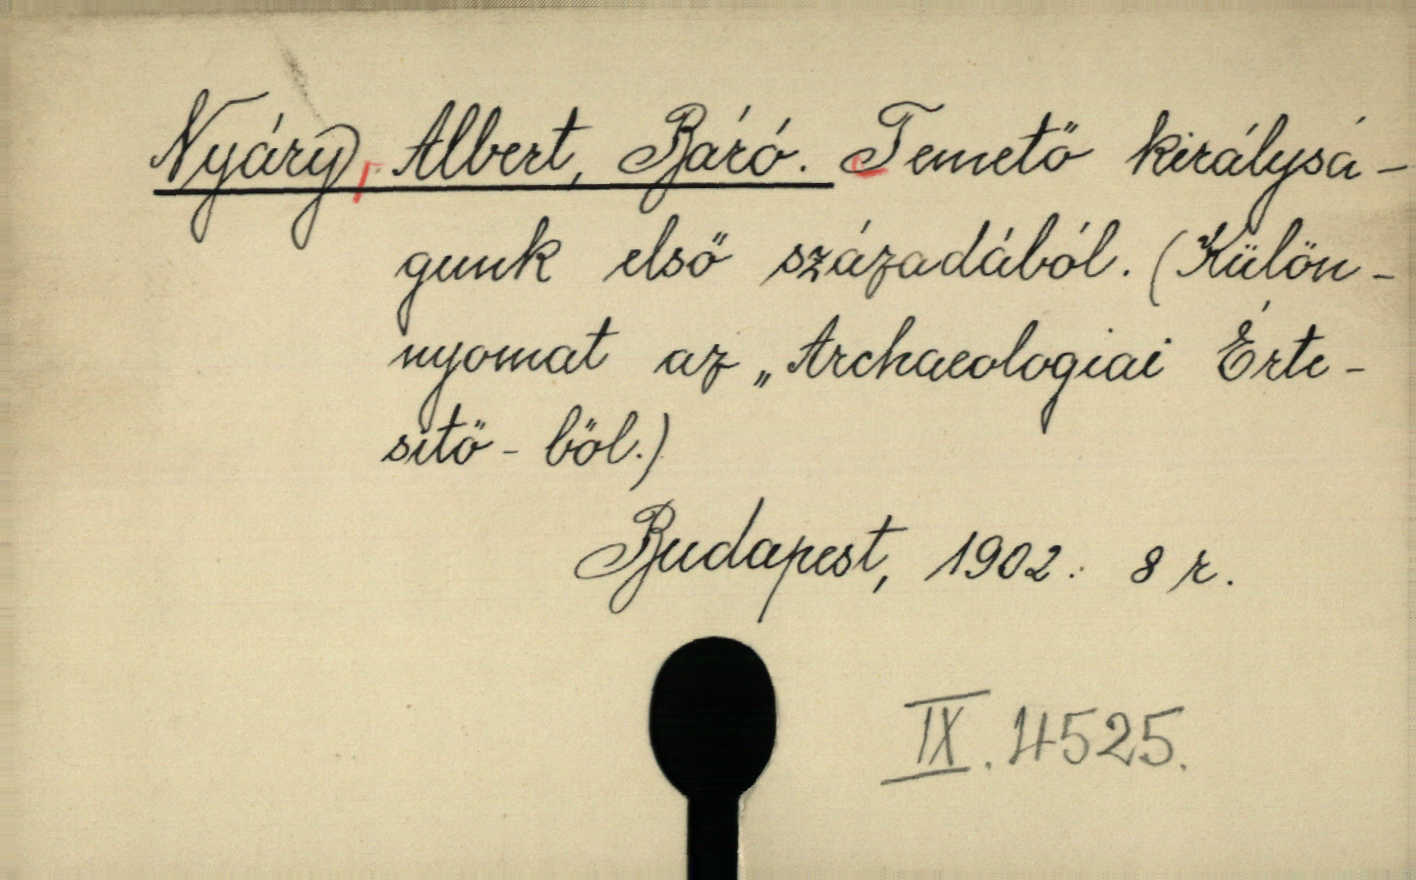 Nyáry, Albert, Báró. Temető királysá-
gunk első századából. (Külön-
nyomat az „Archaeologiai Érte-
sitő-ből.)
Budapest, 1902. 8 r.
IX. 4525.